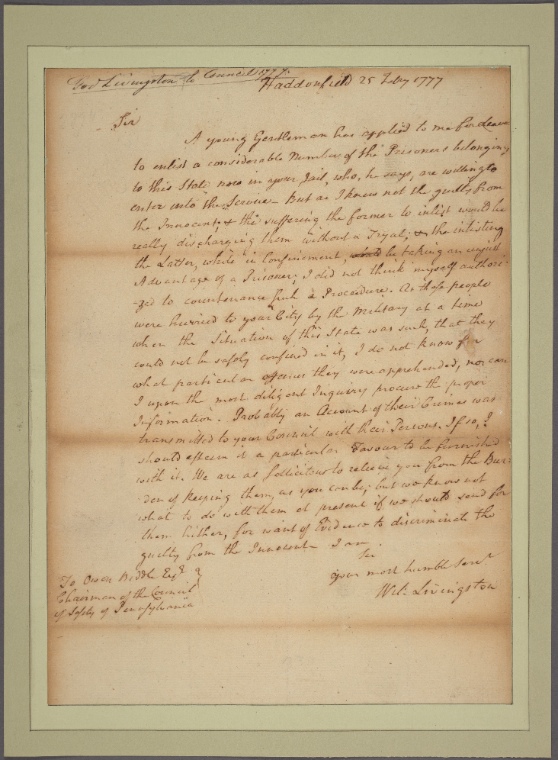 Gov.r Livingston to Council 1777.
Haddonfield 25 Feby 1777
Sir
A young Gentleman has applied to me for leave
to enlist a considerable Number of the Prisoners belonging
to this State now in your Jail, who, he says, are willing to
enter into the Service. But as I know not the guilty from
the Innocent, & the suffering the former to inlist would be
really discharging them without a Tryal; & the inlisting
the Latter, while in Confinement, would be taking an unjust
Advantage of a Prisoner; I did not think myself authori-
-zed to countenance such a Procedure. As those people
were hurried to your City by the Military at a time
when the Situation of this State was such, that they
could not be safely confined in it, I do not know for
what particular offences they were apprehended, nor can
I upon the most diligent Inquiry procure the proper
Information. Probably an Account of their Crimes was
transmitted to your Council with their Persons. If so, I
should esteem it a particular Favour to be furnished
with it. We are as sollicitous to relieve you from the Bur-
den of keeping them, as you can be; but we know not
what to do with them at present if we should send for
them hither, for want of Evidence to discriminate the
guilty from the Innocent. I am
Sir
your most humble Serv.t
Wil. Livingston
To Owen Biddle Esq.r
Chairman of the Council
of Safety of Pensylvania